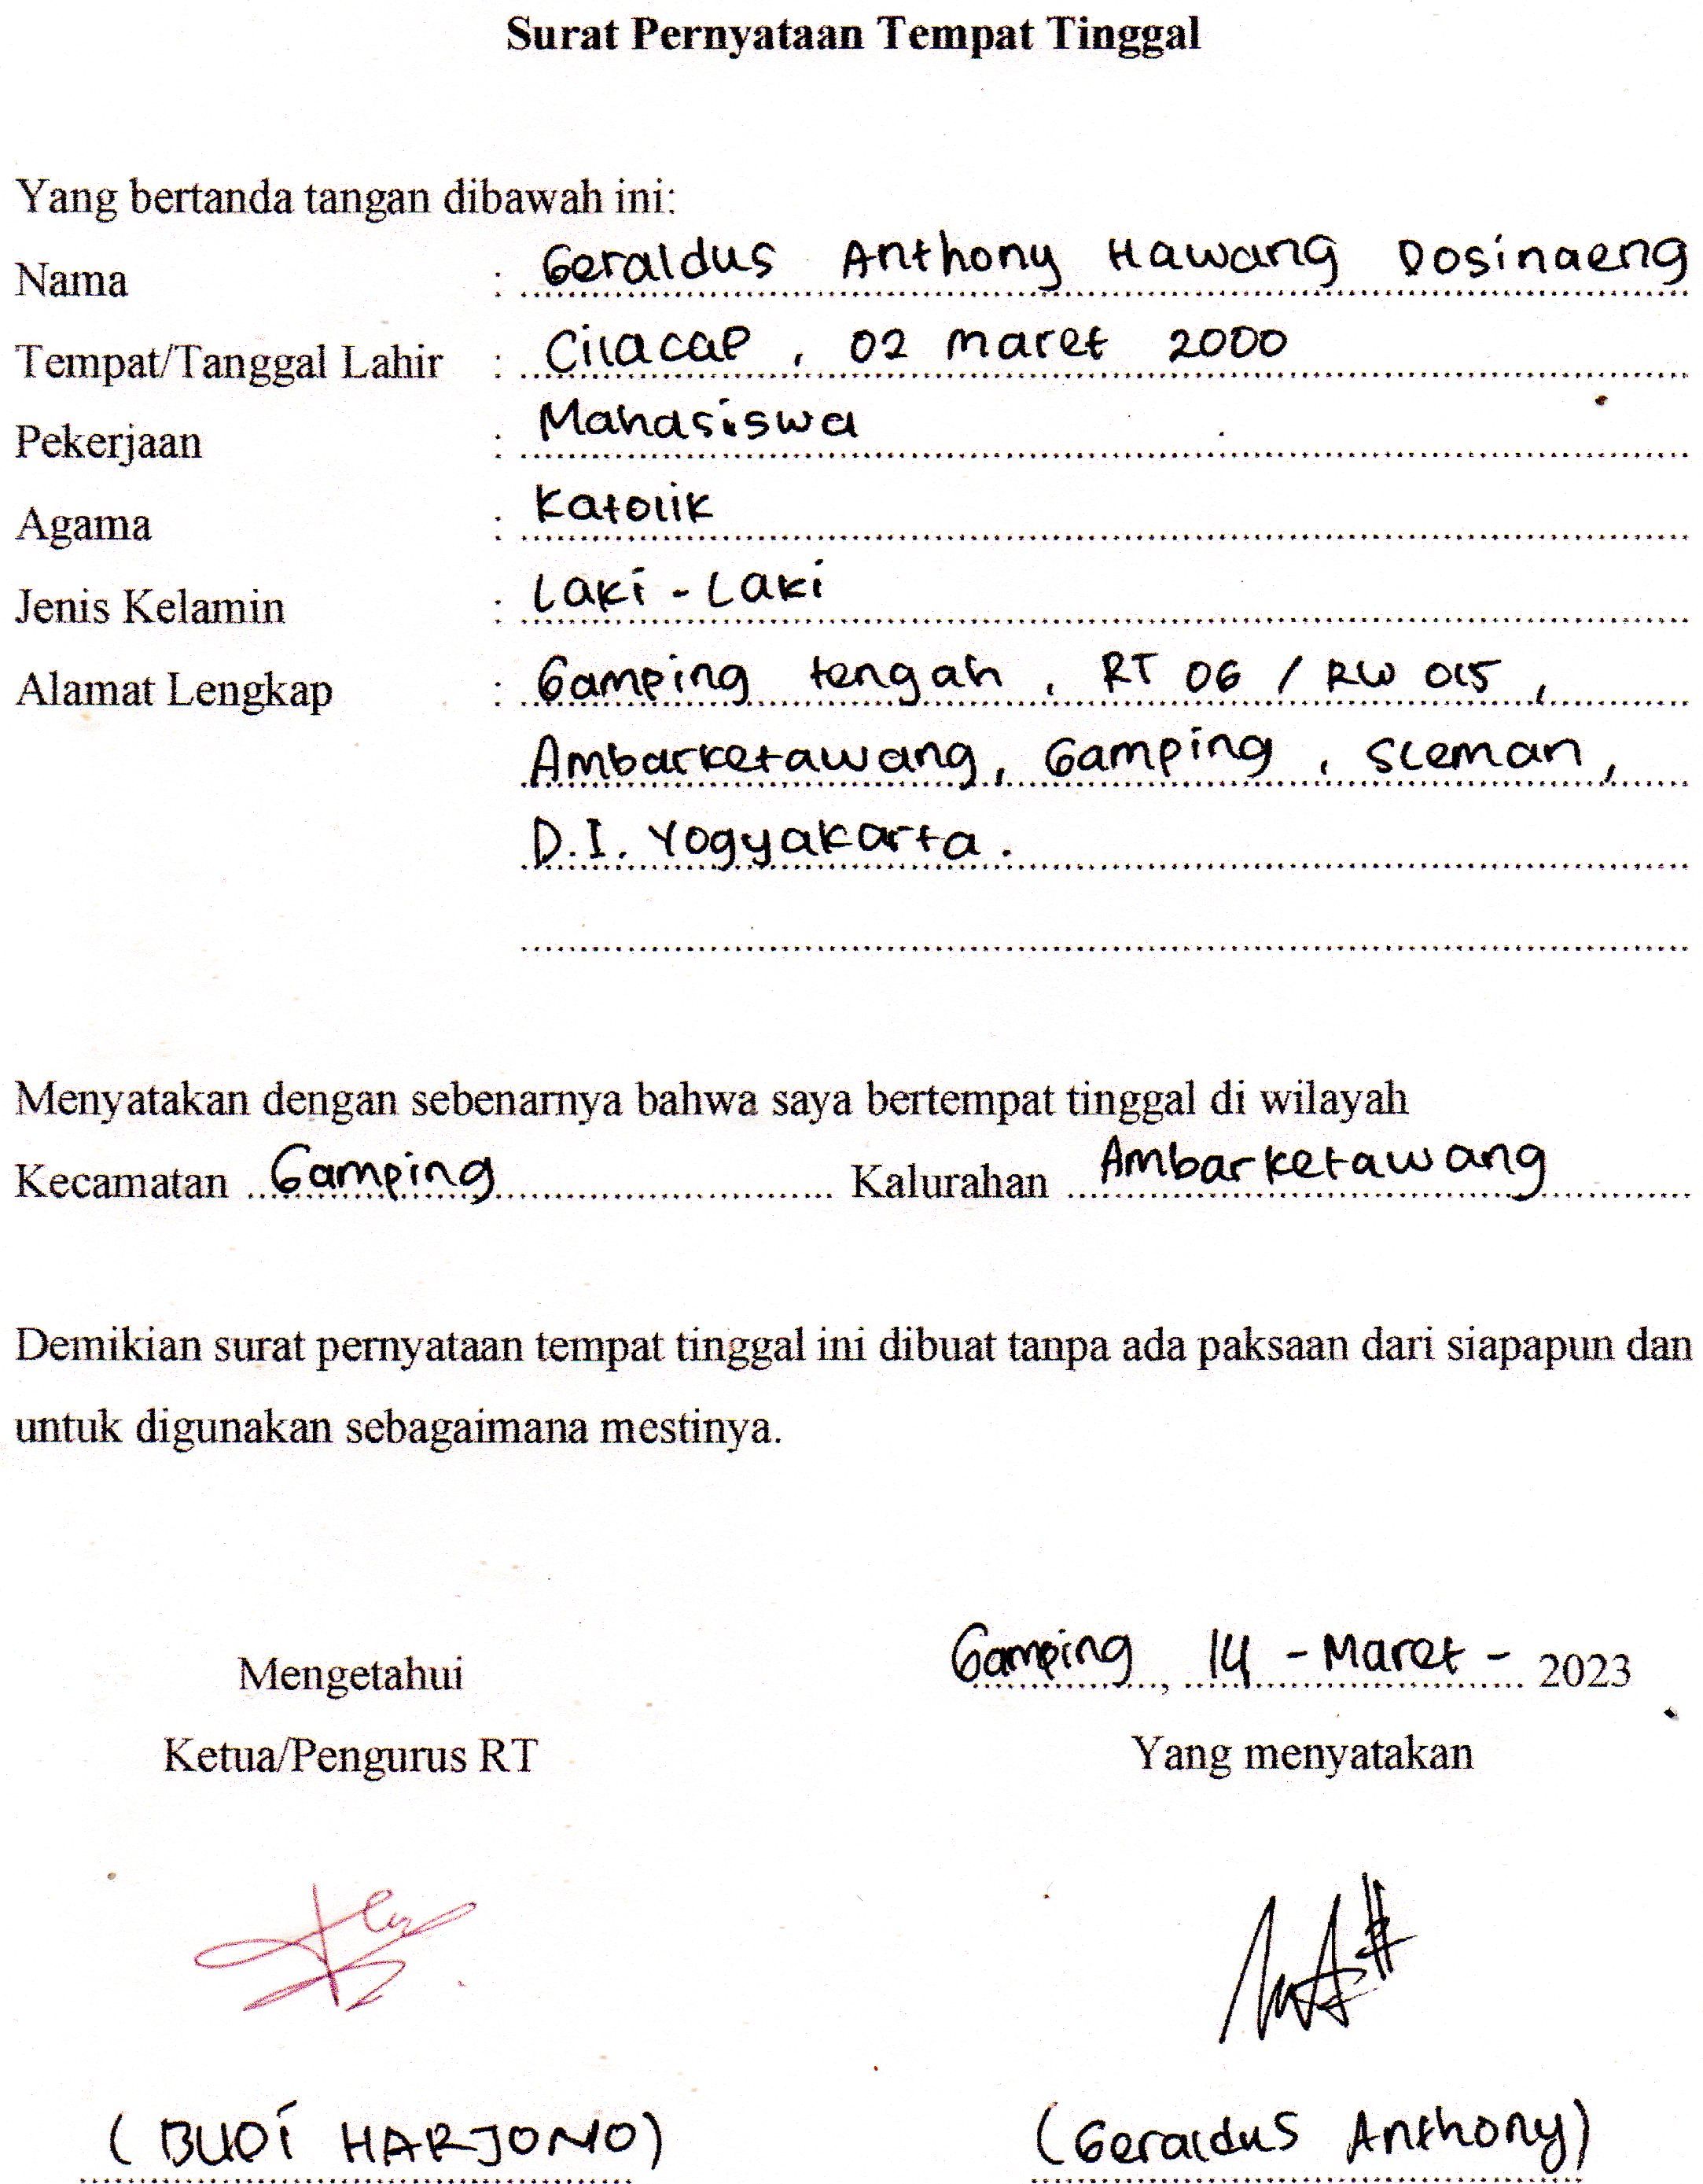 Surat Pernyataan Tempat Tinggal
Yang bertanda tangan dibawah ini:
Nama : Geraldus Anthony Hawang Dosinaeng
Tempat/Tanggal Lahir : Cilacap, 02 Maret 2000
Pekerjaan : Mahasiswa
Agama : Katolik
Jenis Kelamin : Laki - Laki
Alamat Lengkap : Gamping tengah, RT 06 / RW 015,
Ambarketawang, Gamping, Sleman,
D.I. Yogyakarta.
Menyatakan dengan sebenarnya bahwa saya bertempat tinggal di wilayah
Kecamatan Gamping Kalurahan Ambarketawang
Demikian surat pernyataan tempat tinggal ini dibuat tanpa ada paksaan dari siapapun dan
untuk digunakan sebagaimana mestinya.
Gamping, 14 - Maret - 2023
Mengetahui
Ketua/Pengurus RT
Yang menyatakan
(BUDI HARJONO)
(Geraldus Anthony)